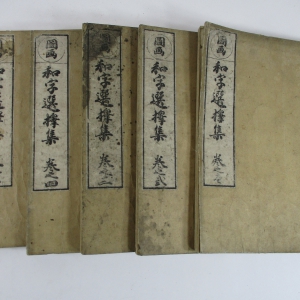 圖画
和字選擇集
巻之
圖画
和字選擇集
巻之弐
圖画
和字選擇集
巻之三
圖画
和字選擇集
巻之四